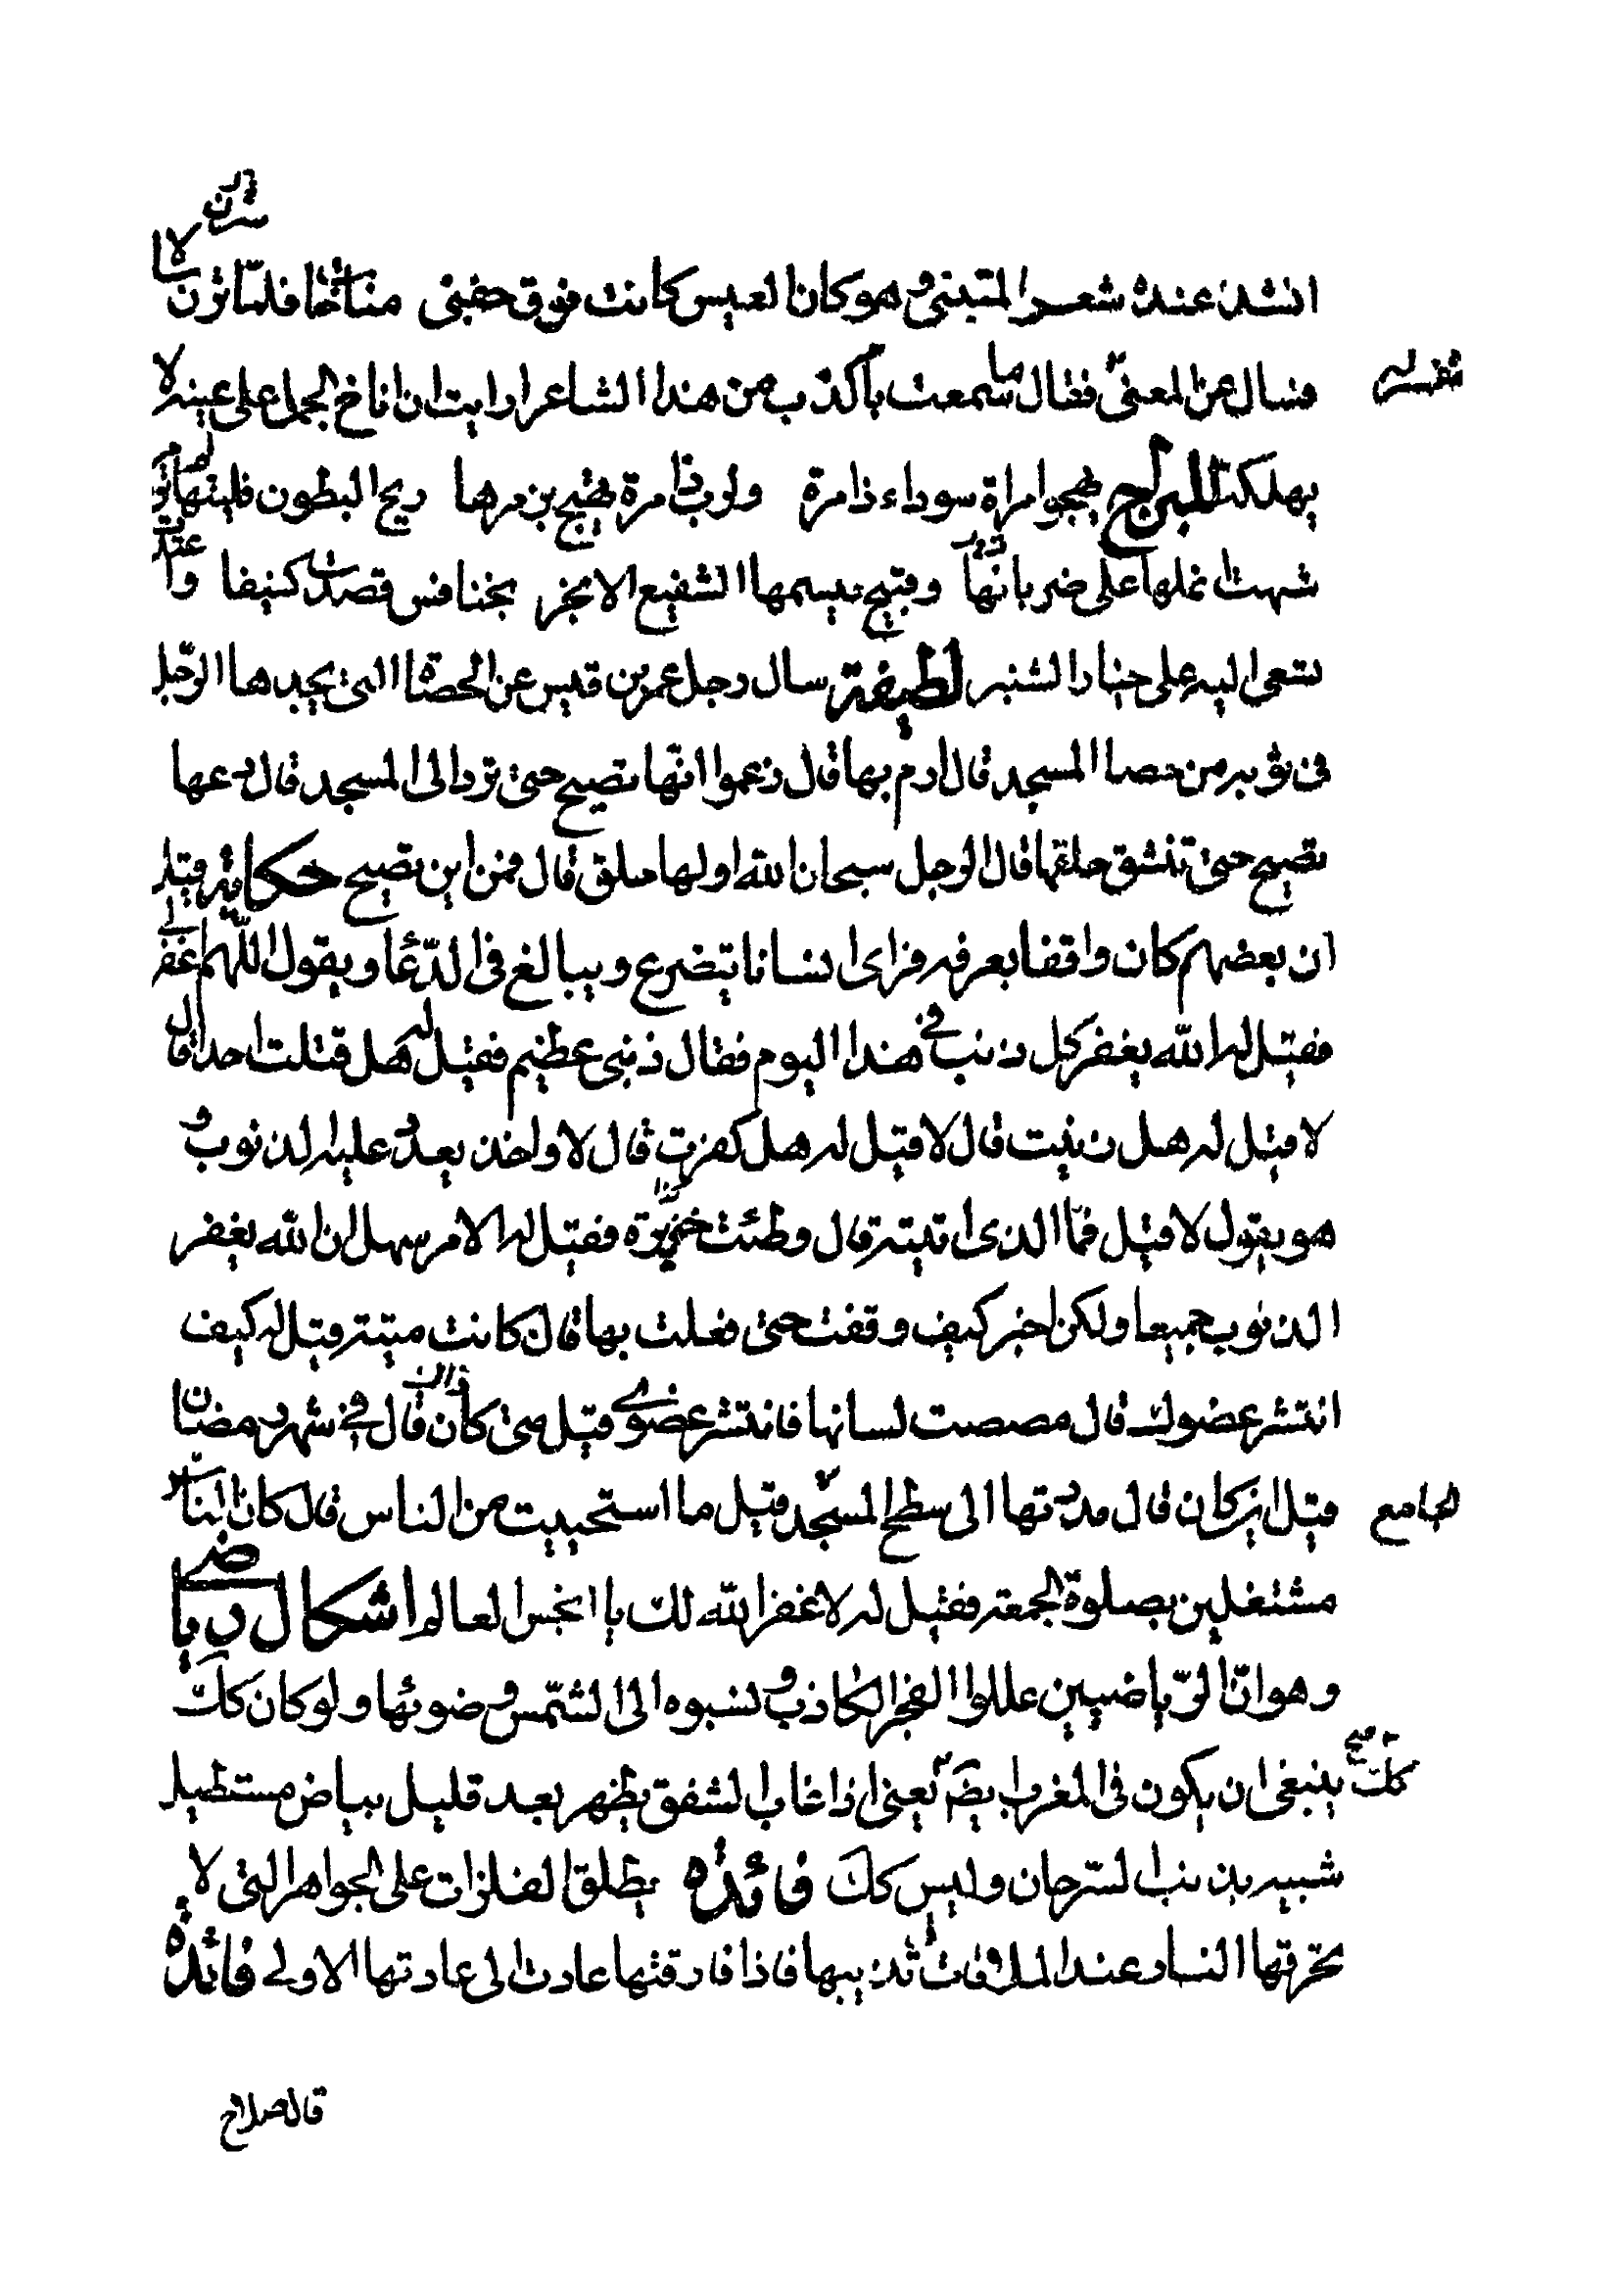 انشد عنده شعر المتبنى و هو كان العيس كانت فوق جفنى مناخا فلما ثرن سالا
فسال عن المعنى فقال ما سمعت باكذب من هذا الشاعر ارايت ان اناخ الجمل على عينه لا
يهلكه للسراج يهجو امراة سوداء ذامرة ولرب ذامرة يهيج بزمرها ريح البطون فليتها لم تزمر
شبهت انملها على ضرباتها وقبيح مبسمها الشفيع الابخر بخنافس قصدت كنيفا واغتدت
تسعى اليه على خيار الشنبر لطيفة سال رجل عمر بن قيس عن الحصاة التى يجدها الرجل
فى ثوبه من حصا المسجد قال ارم بها قال زعموا انها تصيح حتى ترد الى المسجد قال دعها
تصيح حتى تنشق حلقها قال الرجل سبحان الله اولها حلق قال فمن اين تصيح حكاية قيل
ان بعضهم كان واقفا بعرفه فراى انسانا يتضرع ويبالغ فى الدعا ويقول اللهم اغفر لى
فقيل له الله يغفر كل ذنب فى هذا اليوم فقال ذنبى عظيم فقيل له هل قتلت احدا قال
لا قيل له هل زنيت قال لا قيل له هل كفرت قال لا واخذ يعد عليه الذنوب و
هو يقول لا قيل فما الذى اتيته قال وطئت خنزيرة فقيل له الامر سهل ان الله يغفر
الذنوب جميعا ولكن اخبر كيف وقفت حتى فعلت بها قال كانت ميتة قيل له كيف
انتشر عضوك قال مصصت لسانها فانتشر عضوى قيل متى كان ذلك قال فى شهر رمضان
قيل اين كان قال مددتها الى سطح المسجد الجامع قيل ما استحييت من الناس قال كان الناس
مشتغلين بصلوة الجمعة فقيل له لا غفر الله لك يا انجس العالم اشكال رياضى
وهو ان الرياضيين عللوا الفجر الكاذب و نسبوه الى الشمس و ضوئها ولو كان كك
ينبغى ان يكون فى المغرب ايضا كك صح يعنى اذا غاب الشفق يظهر بعد قليل بياض مستطيل
شبيه بذنب السرحان وليس كك فائده يطلق الفلزات على الجواهر التى لا
تحرقها النار عند الملاقات تذيبها فاذا فارقتها عادت الى عادتها الاولى فائده